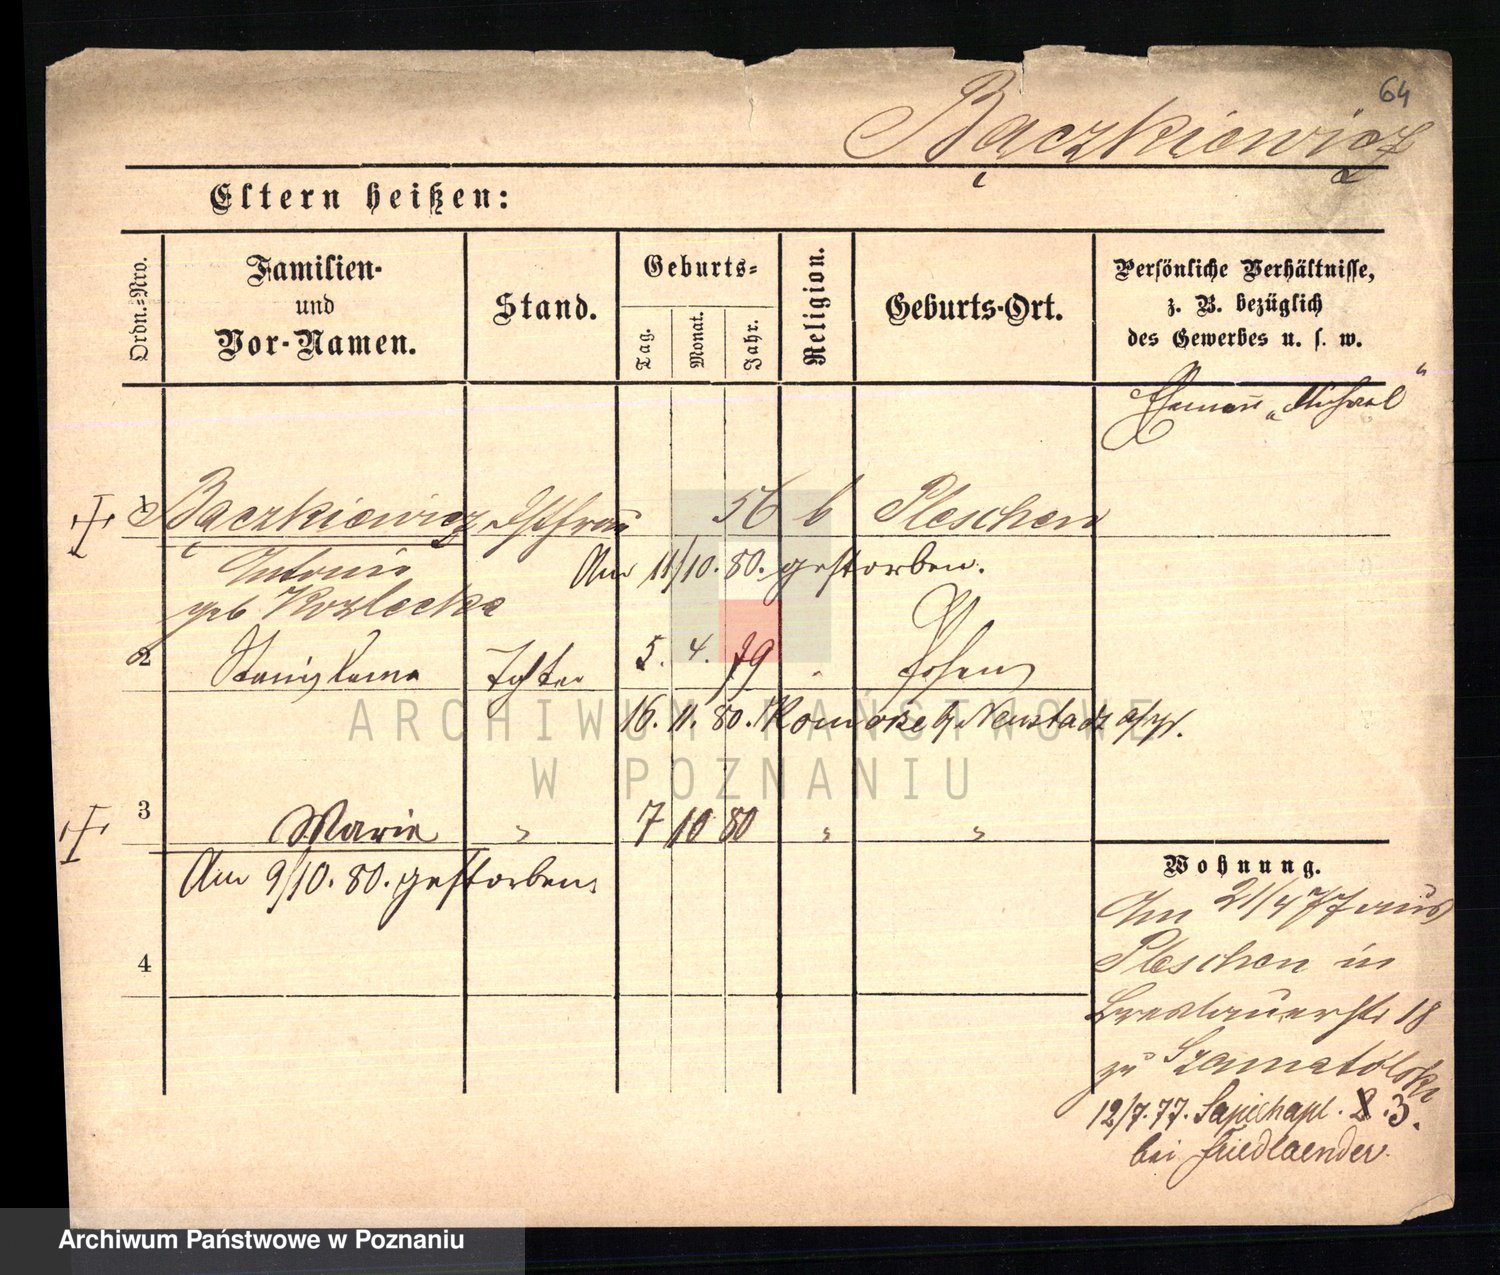 64
Bączkiewicz
Eltern heißen:
Ordn.-Nro.
Familien-
und
Vor-Namen.
Stand.
Geburts-
Tag.
Monat.
Jahr.
Religion.
Geburts-Ort.
Persönliche Verhältnisse,
z. B. bezüglich
des Gewerbes u. s. w.
Ehemann „Michael“
1 Bączkiewicz Ehefrau 56 k Pleschen
Antonie Am 11/10. 80. gestorben.
geb Kozlecka
2 Stanislawa Tochter 5. 4. 79 Posen
16. 11. 80. Neustadt
3 Marie " 7 10 80 " "
Am 9/10. 80. gestorben
4
Wohnung.
Am 21/4 77 aus
Pleschen in
Breslauerstr 18
zu Szamatolski
12/7. 77. Sapiehapl. 8. 3.
bei Friedlaender.
ARCHIWUM PAŃSTWOWE
W POZNANIU
Archiwum Państwowe w Poznaniu